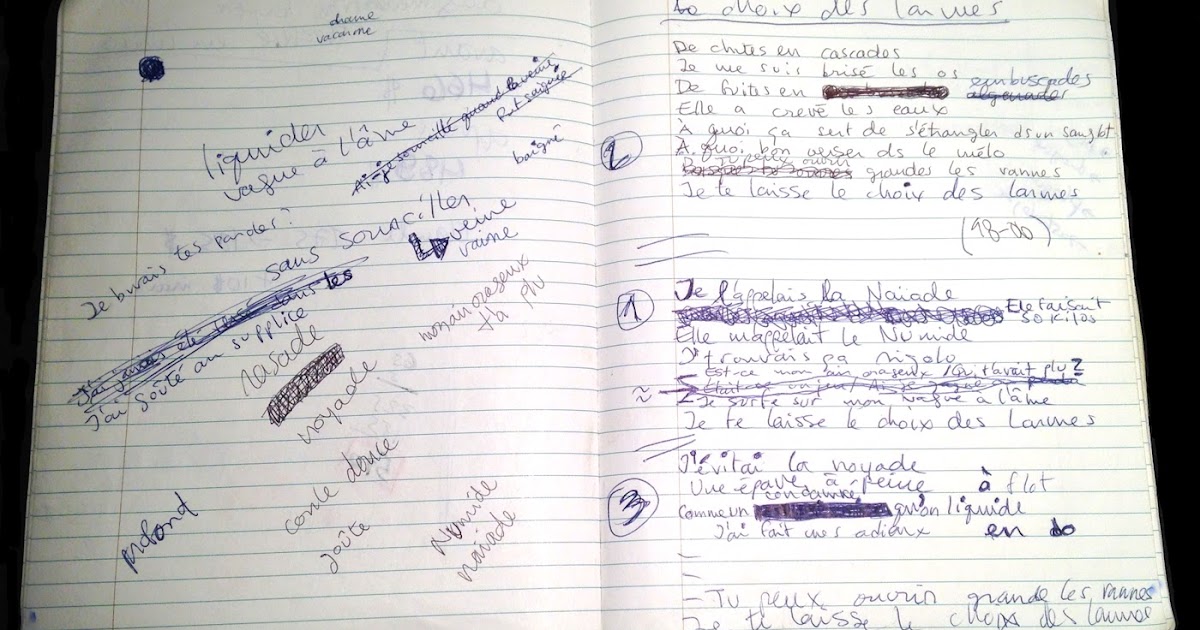 drame
vacarme
liquider
vague à l'âme
Ai-je sourcillé quand la veine
Put saigner
baigné
Je buvais tes paroles?
sans sourciller
veine
vaine
J'ai jamais été dans les
J'ai goûté au supplice
mon air orageux
t'a plu
rasade
noyade
coule douce
goûte
profond
Numide
naïade
Le choix des larmes
De chutes en cascades
Je me suis brisé les os
De fuites en embuscades
Elle a crevé les eaux
2
À quoi ça sert de s'étrangler d'un sanglot
À quoi bon verser ds le mélo
Tu peux ouvrir
grandes les vannes
Je te laisse le choix des larmes
(98-00)
1
Je l'appelais la Naïade
Elle faisait
50 kilos
Elle m'appelait le Numide
J'trouvais ça rigolo
Est-ce mon air orageux qui t'avait plu ?
Je surfe sur mon vague à l'âme
Je te laisse le choix des larmes
3
J'évitai la noyade
Une épave à peine à flot
Comme un condamné qu'on liquide
J'ai fait mes adieux en do
Tu peux ouvrir grande les vannes
Je te laisse le choix des larmes